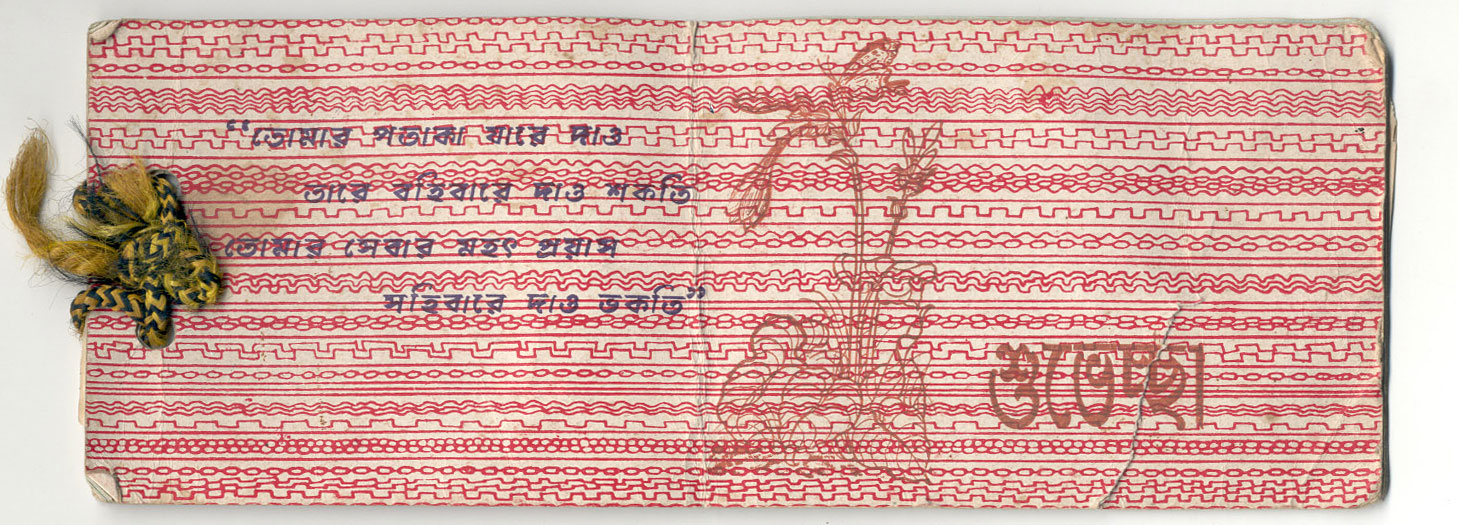 “তোমার পতাকা যারে দাও
তারে বহিবারে দাও শকতি
তোমার সেবার মহৎ প্রয়াস
সহিবারে দাও ভকতি”
শুভেচ্ছা